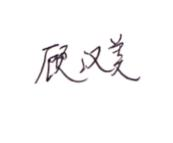 顾汉美